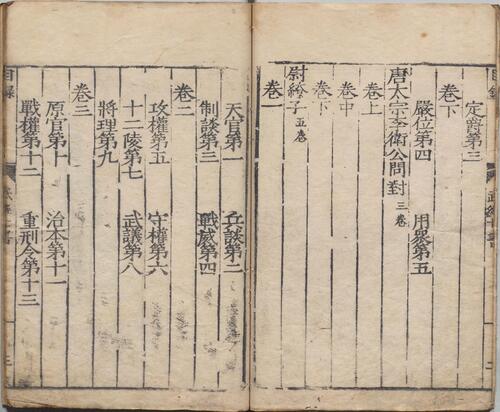 定爵第三
卷下
嚴位第四 用衆第五
唐太宗李衛公問對 三卷
卷上
卷中
卷下
尉繚子 五卷
卷一
天官第一 兵談第二
制談第三 戰威第四
卷二
攻權第五 守權第六
十二陵第七 武議第八
將理第九
卷三
原官第十 治本第十一
戰權第十二 重刑令第十三
目錄
三